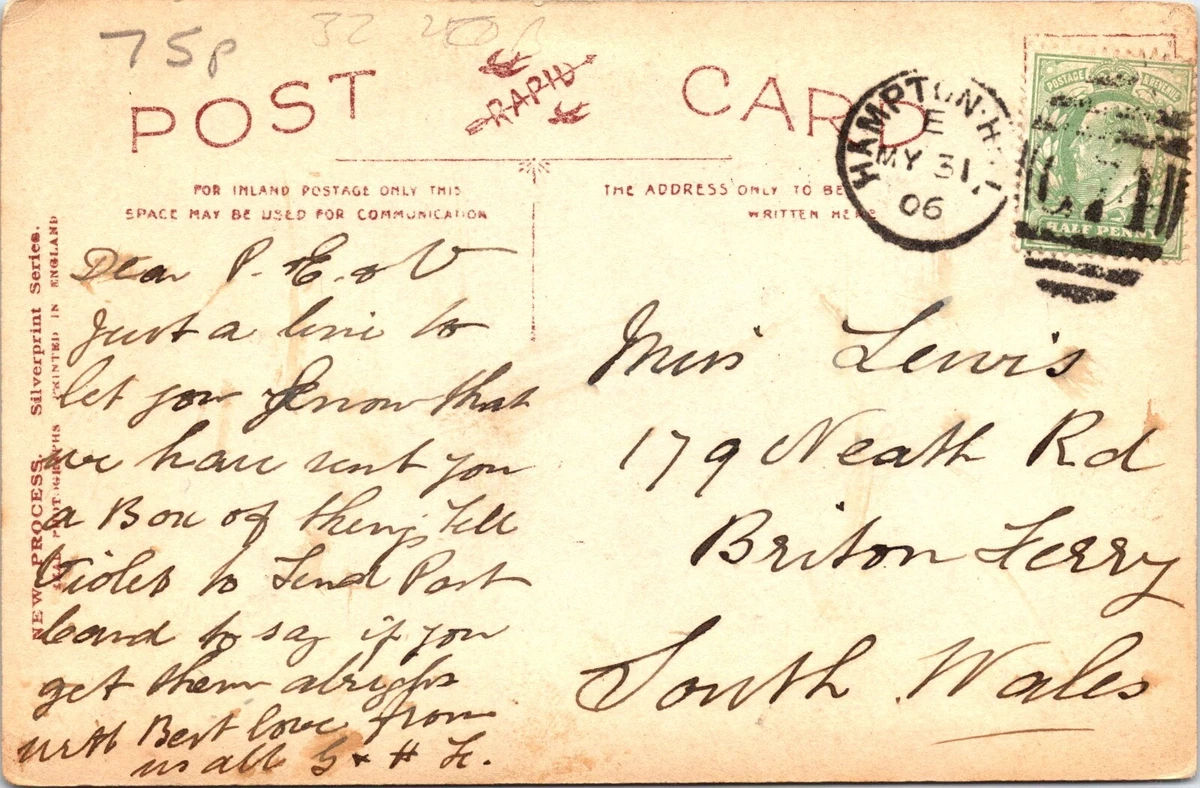 75p
POST CARD
RAPID
FOR INLAND POSTAGE ONLY THIS
SPACE MAY BE USED FOR COMMUNICATION
THE ADDRESS ONLY TO BE
WRITTEN HERE
HAMPTON H
E
MY 31
06
POSTAGE REVENUE
HALF PENNY
NEW PROCESS. Silverprint Series.
PHOTOGRAPHS PRINTED IN ENGLAND
Dear P. E. & V
Just a line to
let you know that
we have sent you
a Box of things Tell
Violet to Send Post
Card to say if you
get them alright
with Best love from
us all G & H F.
Miss Lewis
179 Neath Rd
Briton Ferry
South Wales